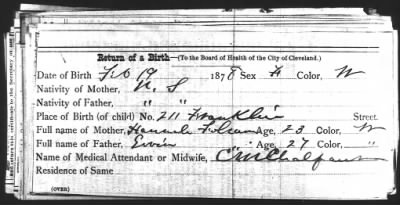 Return of a Birth—(To the Board of Health of the City of Cleveland.)
Date of Birth Feb 19 1878 Sex F Color, W
Nativity of Mother, U. S
Nativity of Father, " "
Place of Birth (of child) No. 211 Franklin Street
Full name of Mother, Hannah Age, 23 Color, W
Full name of Father, Age, 27 Color, "
Name of Medical Attendant or Midwife,
Residence of Same
(OVER)